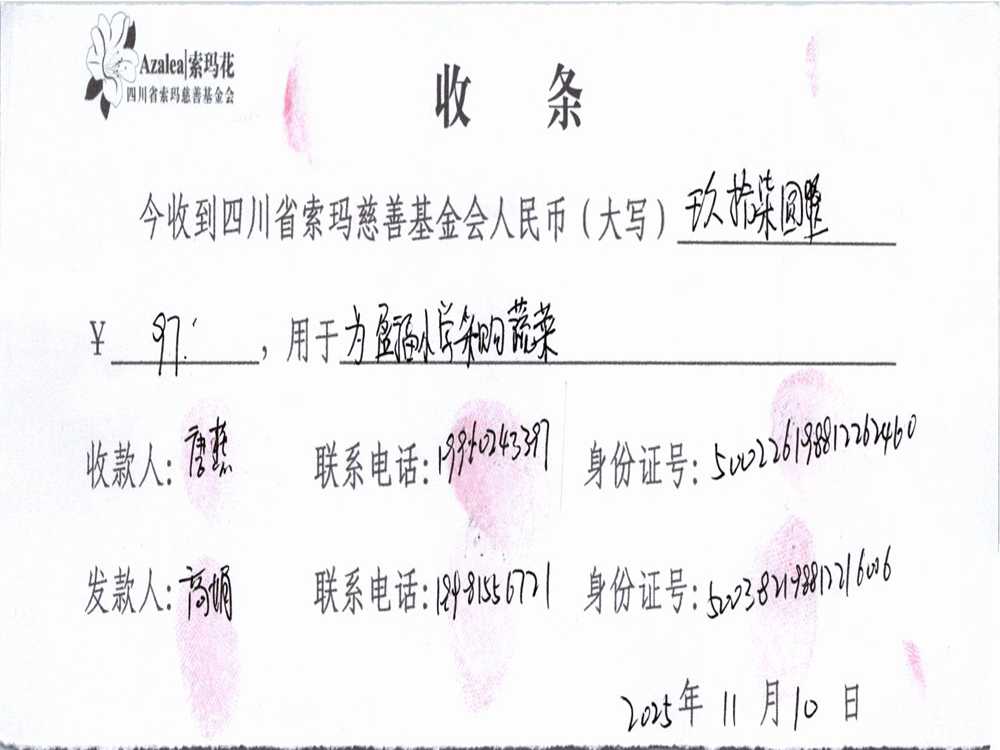 Azalea|索玛花
四川省索玛慈善基金会
收 条
今收到四川省索玛慈善基金会人民币（大写）玖拾柒圆整
¥ 97. ，用于为盈福小学采购蔬菜
收款人：唐慧 联系电话：19960243397 身份证号：500226198812262460
发款人：高娟 联系电话：18481556721 身份证号：500382198812216006
2025年 11 月 10 日